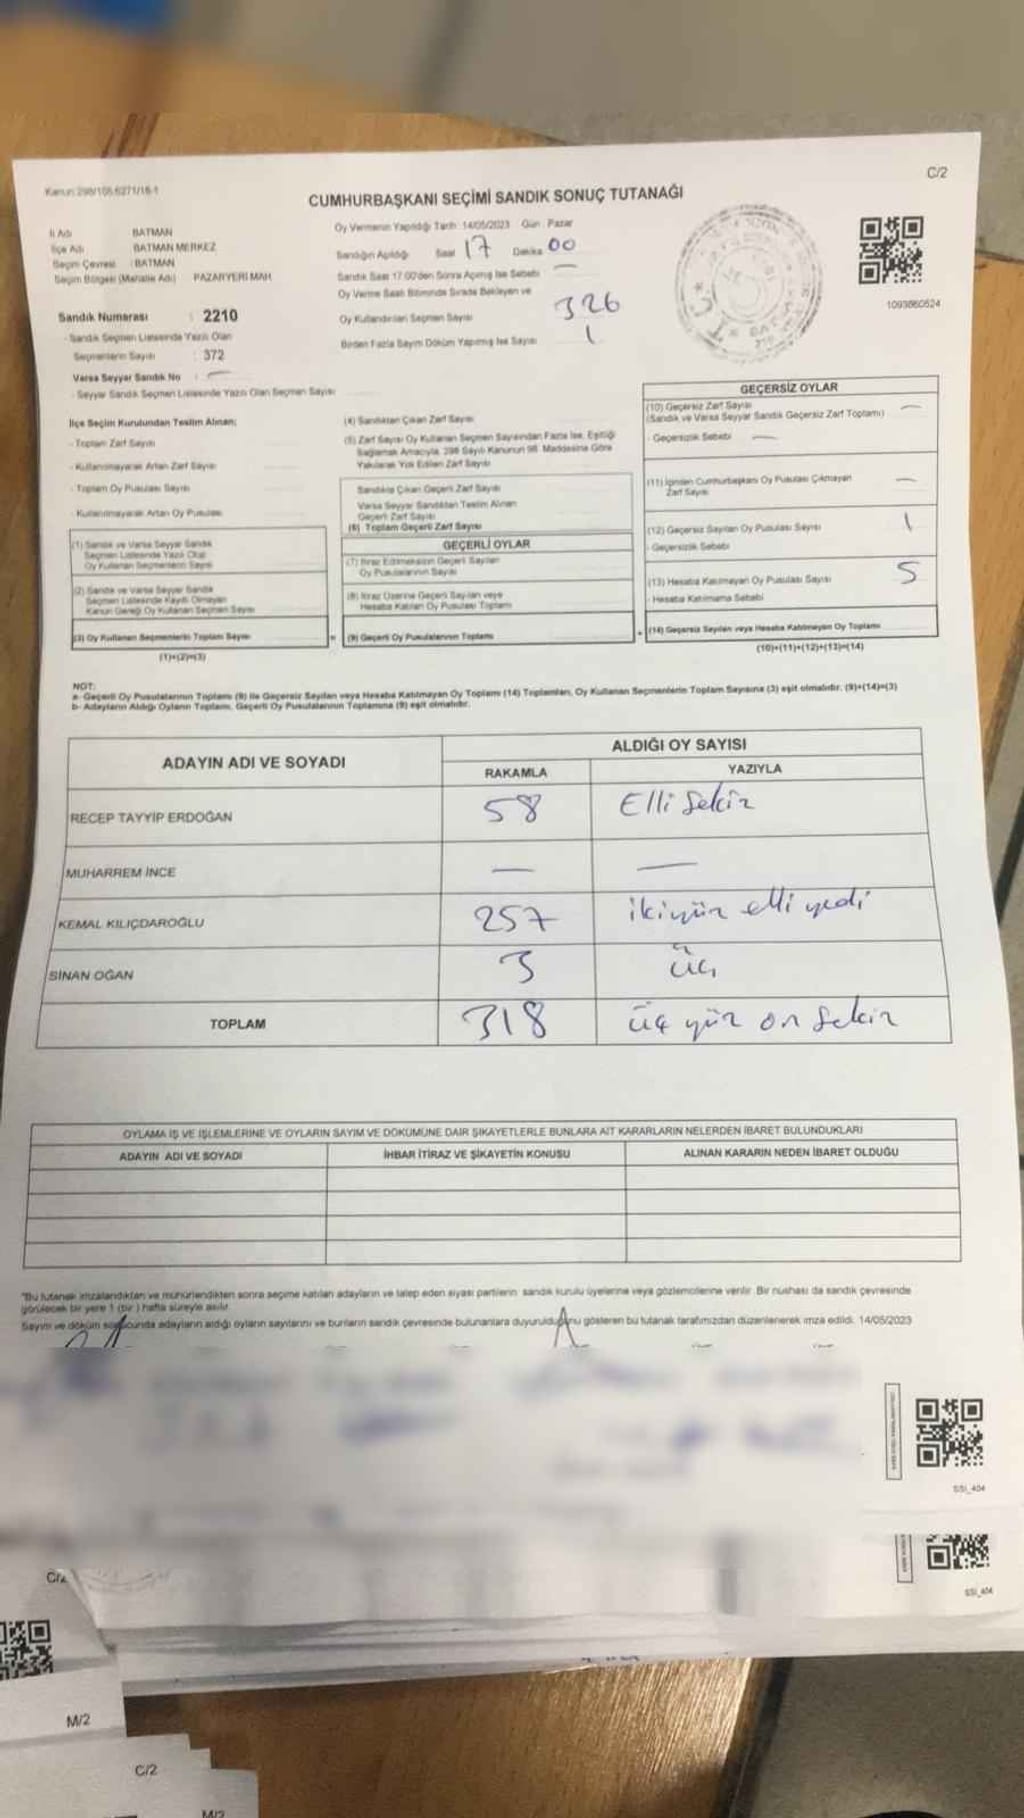 C/2
Kanun: 298/105 6271/18-1
CUMHURBAŞKANI SEÇİMİ SANDIK SONUÇ TUTANAĞI
İl Adı BATMAN
İlçe Adı BATMAN MERKEZ
Seçim Çevresi : BATMAN
Seçim Bölgesi (Mahalle Adı) PAZARYERİ MAH.
Sandık Numarası : 2210
- Sandık Seçmen Listesinde Yazılı Olan
Seçmenlerin Sayısı : 372
Varsa Seyyar Sandık No : —
- Seyyar Sandık Seçmen Listesinde Yazılı Olan Seçmen Sayısı
Oy Vermenin Yapıldığı Tarih: 14/05/2023 Gün : Pazar
Sandığın Açıldığı Saat 17 Dakika 00
Sandık Saat 17.00'den Sonra Açılmış İse Sebebi —
Oy Verme Saati Bitiminde Sırada Bekleyen ve
Oy Kullandırılan Seçmen Sayısı 326
Birden Fazla Sayım Döküm Yapılmış İse Sayısı 1
1093860524
İlçe Seçim Kurulundan Teslim Alınan;
- Toplam Zarf Sayısı
- Kullanılmayarak Artan Zarf Sayısı
- Toplam Oy Pusulası Sayısı
- Kullanılmayarak Artan Oy Pusulası
(1) Sandık ve Varsa Seyyar Sandık
Seçmen Listesinde Yazılı Olup
Oy Kullanan Seçmenlerin Sayısı
(2) Sandık ve Varsa Seyyar Sandık
Seçmen Listesinde Kayıtlı Olmayan
Kanun Gereği Oy Kullanan Seçmen Sayısı
(3) Oy Kullanan Seçmenlerin Toplam Sayısı
(1)+(2)=(3)
(4) Sandıktan Çıkan Zarf Sayısı
(5) Zarf Sayısı Oy Kullanan Seçmen Sayısından Fazla İse, Eşitliği
Sağlamak Amacıyla, 298 Sayılı Kanunun 98. Maddesine Göre
Yakılarak Yok Edilen Zarf Sayısı
Sandıkta Çıkan Geçerli Zarf Sayısı
Varsa Seyyar Sandıktan Teslim Alınan
Geçerli Zarf Sayısı
(6) Toplam Geçerli Zarf Sayısı
GEÇERLİ OYLAR
(7) İtiraz Edilmeksizin Geçerli Sayılan
Oy Pusulalarının Sayısı
(8) İtiraz Üzerine Geçerli Sayılan veya
Hesaba Katılan Oy Pusulası Toplamı
= (9) Geçerli Oy Pusulalarının Toplamı
GEÇERSİZ OYLAR
(10) Geçersiz Zarf Sayısı —
(Sandık ve Varsa Seyyar Sandık Geçersiz Zarf Toplamı)
- Geçersizlik Sebebi —
(11) İçinden Cumhurbaşkanı Oy Pusulası Çıkmayan —
Zarf Sayısı
(12) Geçersiz Sayılan Oy Pusulası Sayısı 1
- Geçersizlik Sebebi
(13) Hesaba Katılmayan Oy Pusulası Sayısı 5
- Hesaba Katılmama Sebebi
+ (14) Geçersiz Sayılan veya Hesaba Katılmayan Oy Toplamı
(10)+(11)+(12)+(13)=(14)
NOT:
a- Geçerli Oy Pusulalarının Toplamı (9) ile Geçersiz Sayılan veya Hesaba Katılmayan Oy Toplamı (14) Toplamları, Oy Kullanan Seçmenlerin Toplam Sayısına (3) eşit olmalıdır. (9)+(14)=(3)
b- Adayların Aldığı Oyların Toplamı, Geçerli Oy Pusulalarının Toplamına (9) eşit olmalıdır.
ADAYIN ADI VE SOYADI ALDIĞI OY SAYISI
RAKAMLA YAZIYLA
RECEP TAYYİP ERDOĞAN 58 Elli Sekiz
MUHARREM İNCE — —
KEMAL KILIÇDAROĞLU 257 ikiyüz elli yedi
SİNAN OĞAN 3 üç
TOPLAM 318 üç yüz on Sekiz
OYLAMA İŞ VE İŞLEMLERİNE VE OYLARIN SAYIM VE DÖKÜMÜNE DAİR ŞİKAYETLERLE BUNLARA AİT KARARLARIN NELERDEN İBARET BULUNDUKLARI
ADAYIN ADI VE SOYADI İHBAR İTİRAZ VE ŞİKAYETİN KONUSU ALINAN KARARIN NEDEN İBARET OLDUĞU
*Bu tutanak imzalandıktan ve mühürlendikten sonra seçime katılan adayların ve talep eden siyasi partilerin sandık kurulu üyelerine veya gözlemcilerine verilir. Bir nüshası da sandık çevresinde
görülecek bir yere 1 (bir) hafta süreyle asılır.
Sayım ve döküm sonucunda adayların aldığı oyların sayılarını ve bunların sandık çevresinde bulunanlara duyurulduğunu gösteren bu tutanak tarafımızdan düzenlenerek imza edildi. 14/05/2023
SSI_404
SSI_404
C/2
M/2
C/2
M/2